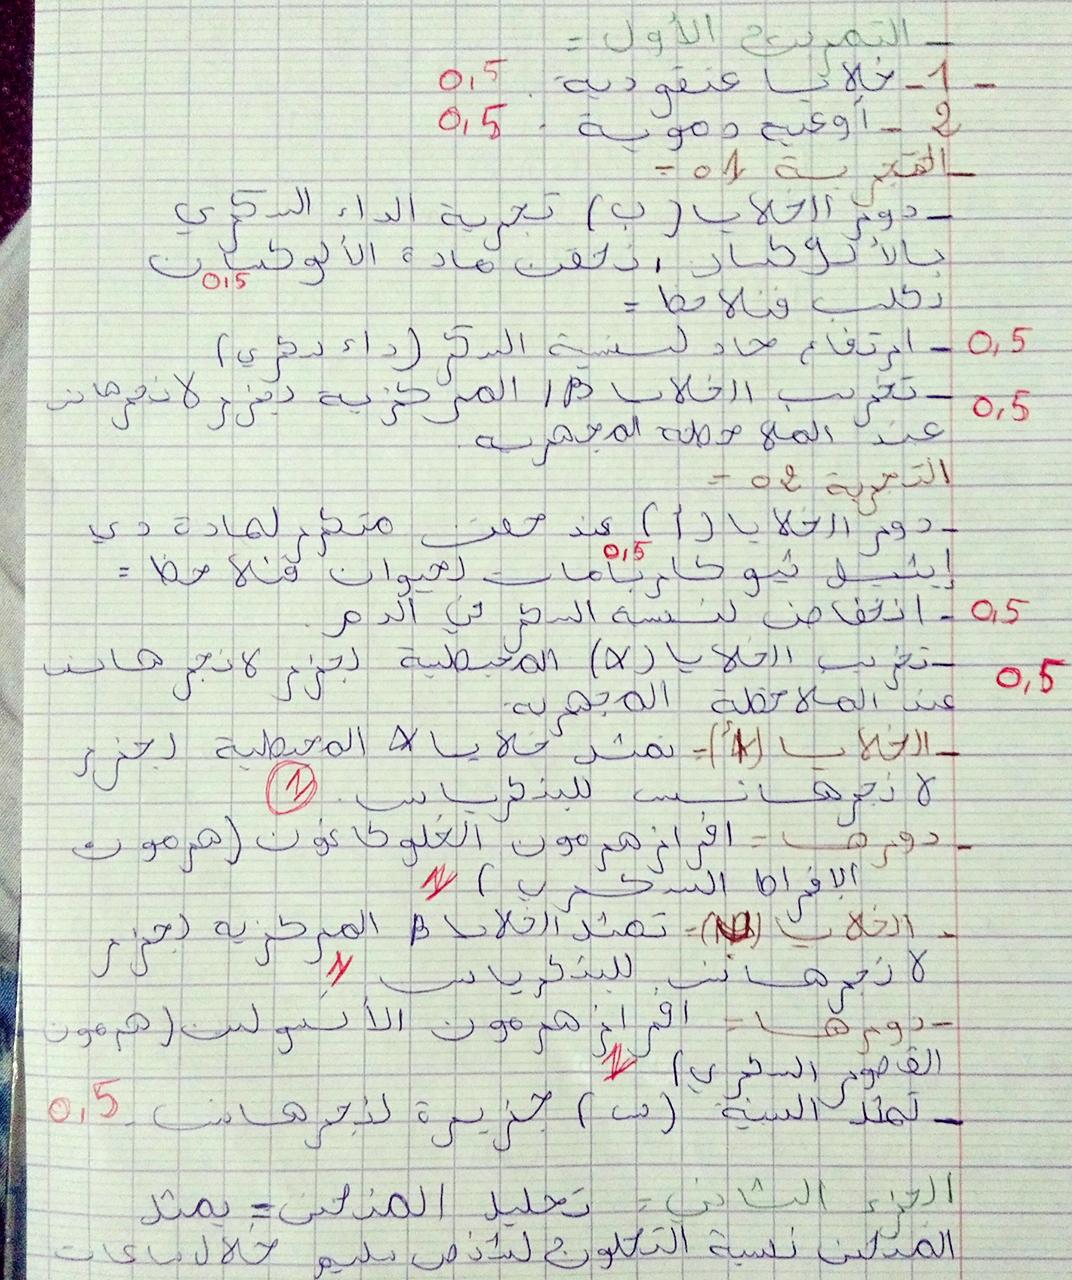 - التمرين الأول =
- 1- خلايا عنقودية . 0,5
2 - أوعية دموية . 0,5
- التجربة 01 =
- دور الخلايا (ب) تجربة الداء السكري
بالألوكسان ، نحقن مادة الألوكسان 0,5
لكلب فنلاحظ =
- ارتفاع حاد لنسبة السكر (داء سكري) 0,5
- تخريب الخلايا β المركزية لجزر لانجرهانس 0,5
عند الملاحظة المجهرية .
التجربة 02 =
- دور الخلايا (أ) عند حقن متكرر لمادة دي
إيثيل ثيو كاربامات لحيوان فنلاحظ = 0,5
- انخفاض لنسبة السكر في الدم 0,5
- تخريب الخلايا (α) المحيطية لجزر لانجرهانس 0,5
عند الملاحظة المجهرية .
- الخلايا (أ) = تمثل خلايا α المحيطية لجزر
لانجرهانس للبنكرياس . 1
- دورها = افراز هرمون الغلوكاغون (هرمون
الافراط السكري) 1
- الخلايا = تمثل الخلايا β المركزية لجزر
لانجرهانس للبنكرياس 1
- دورها = افراز هرمون الأنسولين (هرمون
القصور السكري) 1
- تمثل البنية (س) جزيرة لانجرهانس . 0,5
الجزء الثاني = تحليل المنحنى = يمثل
المنحنى نسبة التحلون لشخص سليم خلال ساعات